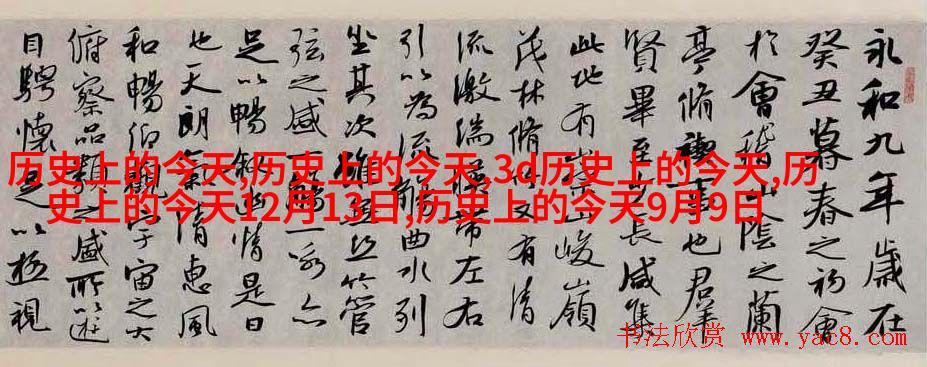 永和九年歲在
癸丑暮春之初會
於會稽山陰之蘭
亭脩禊事也羣
賢畢至少長咸集
此地有崇山峻嶺
茂林脩竹又有清
流激湍暎帶左右
引以為流觴曲水列
坐其次雖無絲竹管
弦之盛一觴一詠亦
足以暢敘幽情是日
也天朗氣清惠風
和暢仰觀宇宙之大
俯察品類之盛所以遊
目騁懷足以極視
历史上的今天,历史上的今天,3d历史上的今天,历
史上的今天12月13日,历史上的今天9月9日
书法欣赏 www.yac8.com